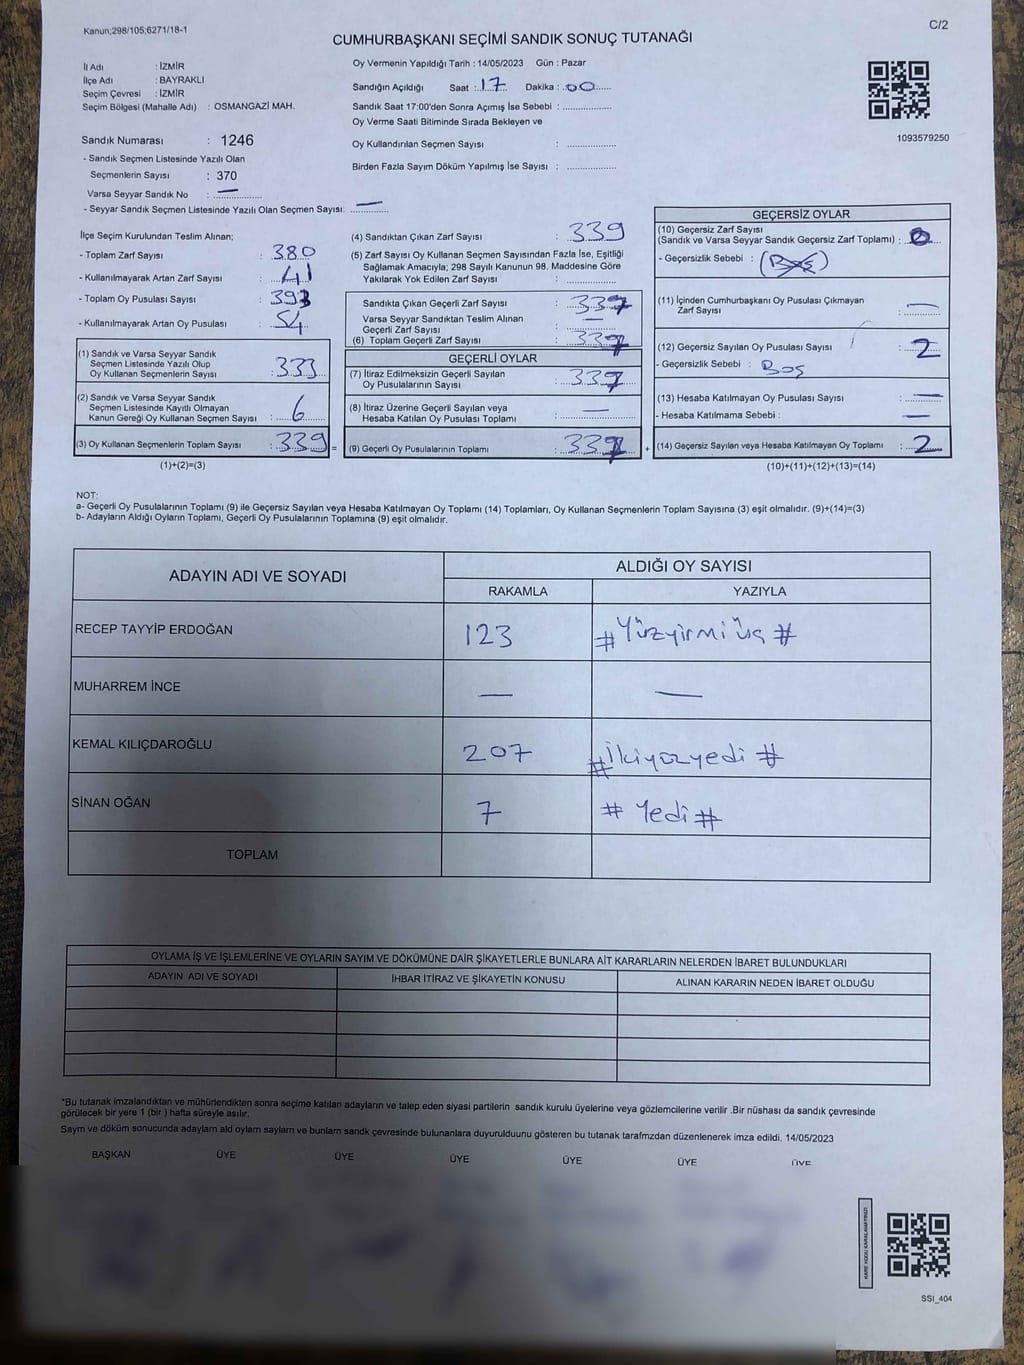 Kanun;298/105;6271/18-1
C/2
CUMHURBAŞKANI SEÇİMİ SANDIK SONUÇ TUTANAĞI
İl Adı : İZMİR
İlçe Adı : BAYRAKLI
Seçim Çevresi : İZMİR
Seçim Bölgesi (Mahalle Adı) : OSMANGAZİ MAH.
Oy Vermenin Yapıldığı Tarih : 14/05/2023 Gün : Pazar
Sandığın Açıldığı Saat : 17 Dakika : 00
Sandık Saat 17:00'den Sonra Açımış İse Sebebi :
Oy Verme Saati Bitiminde Sırada Bekleyen ve
Oy Kullandırılan Seçmen Sayısı :
Birden Fazla Sayım Döküm Yapılmış İse Sayısı :
1093579250
Sandık Numarası : 1246
- Sandık Seçmen Listesinde Yazılı Olan
Seçmenlerin Sayısı : 370
Varsa Seyyar Sandık No : —
- Seyyar Sandık Seçmen Listesinde Yazılı Olan Seçmen Sayısı: —
İlçe Seçim Kurulundan Teslim Alınan;
- Toplam Zarf Sayısı : 380
- Kullanılmayarak Artan Zarf Sayısı : 41
- Toplam Oy Pusulası Sayısı : 393
- Kullanılmayarak Artan Oy Pusulası : 54
(1) Sandık ve Varsa Seyyar Sandık
Seçmen Listesinde Yazılı Olup
Oy Kullanan Seçmenlerin Sayısı : 333
(2) Sandık ve Varsa Seyyar Sandık
Seçmen Listesinde Kayıtlı Olmayan
Kanun Gereği Oy Kullanan Seçmen Sayısı : 6
(3) Oy Kullanan Seçmenlerin Toplam Sayısı : 339 =
(1)+(2)=(3)
(4) Sandıktan Çıkan Zarf Sayısı : 339
(5) Zarf Sayısı Oy Kullanan Seçmen Sayısından Fazla İse, Eşitliği
Sağlamak Amacıyla; 298 Sayılı Kanunun 98. Maddesine Göre
Yakılarak Yok Edilen Zarf Sayısı :
Sandıkta Çıkan Geçerli Zarf Sayısı : 337
Varsa Seyyar Sandıktan Teslim Alınan
Geçerli Zarf Sayısı : —
(6) Toplam Geçerli Zarf Sayısı : 337
GEÇERLİ OYLAR
(7) İtiraz Edilmeksizin Geçerli Sayılan
Oy Pusulalarının Sayısı : 337
(8) İtiraz Üzerine Geçerli Sayılan veya
Hesaba Katılan Oy Pusulası Toplamı : —
(9) Geçerli Oy Pusulalarının Toplamı : 337 +
GEÇERSİZ OYLAR
(10) Geçersiz Zarf Sayısı
(Sandık ve Varsa Seyyar Sandık Geçersiz Zarf Toplamı) : 0
- Geçersizlik Sebebi :
(11) İçinden Cumhurbaşkanı Oy Pusulası Çıkmayan
Zarf Sayısı : —
(12) Geçersiz Sayılan Oy Pusulası Sayısı : 2
- Geçersizlik Sebebi : Boş
(13) Hesaba Katılmayan Oy Pusulası Sayısı : —
- Hesaba Katılmama Sebebi : —
(14) Geçersiz Sayılan veya Hesaba Katılmayan Oy Toplamı : 2
(10)+(11)+(12)+(13)=(14)
NOT:
a- Geçerli Oy Pusulalarının Toplamı (9) ile Geçersiz Sayılan veya Hesaba Katılmayan Oy Toplamı (14) Toplamları, Oy Kullanan Seçmenlerin Toplam Sayısına (3) eşit olmalıdır. (9)+(14)=(3)
b- Adayların Aldığı Oyların Toplamı, Geçerli Oy Pusulalarının Toplamına (9) eşit olmalıdır.
ADAYIN ADI VE SOYADI ALDIĞI OY SAYISI
RAKAMLA YAZIYLA
RECEP TAYYİP ERDOĞAN 123 # Yüzyirmi üç #
MUHARREM İNCE — —
KEMAL KILIÇDAROĞLU 207 # İkiyüzyedi #
SİNAN OĞAN 7 # Yedi #
TOPLAM
OYLAMA İŞ VE İŞLEMLERİNE VE OYLARIN SAYIM VE DÖKÜMÜNE DAİR ŞİKAYETLERLE BUNLARA AİT KARARLARIN NELERDEN İBARET BULUNDUKLARI
ADAYIN ADI VE SOYADI İHBAR İTİRAZ VE ŞİKAYETİN KONUSU ALINAN KARARIN NEDEN İBARET OLDUĞU
*Bu tutanak imzalandıktan ve mühürlendikten sonra seçime katılan adayların ve talep eden siyasi partilerin sandık kurulu üyelerine veya gözlemcilerine verilir .Bir nüshası da sandık çevresinde
görülecek bir yere 1 (bir ) hafta süreyle asılır.
Saym ve döküm sonucunda adaylarn ald oylarn saylarn ve bunlarn sandk çevresinde bulunanlara duyurulduunu gösteren bu tutanak tarafmzdan düzenlenerek imza edildi. 14/05/2023
BAŞKAN ÜYE ÜYE ÜYE ÜYE ÜYE ÜYE
KARE KODU KARALAMAYINIZ!
SSI_404